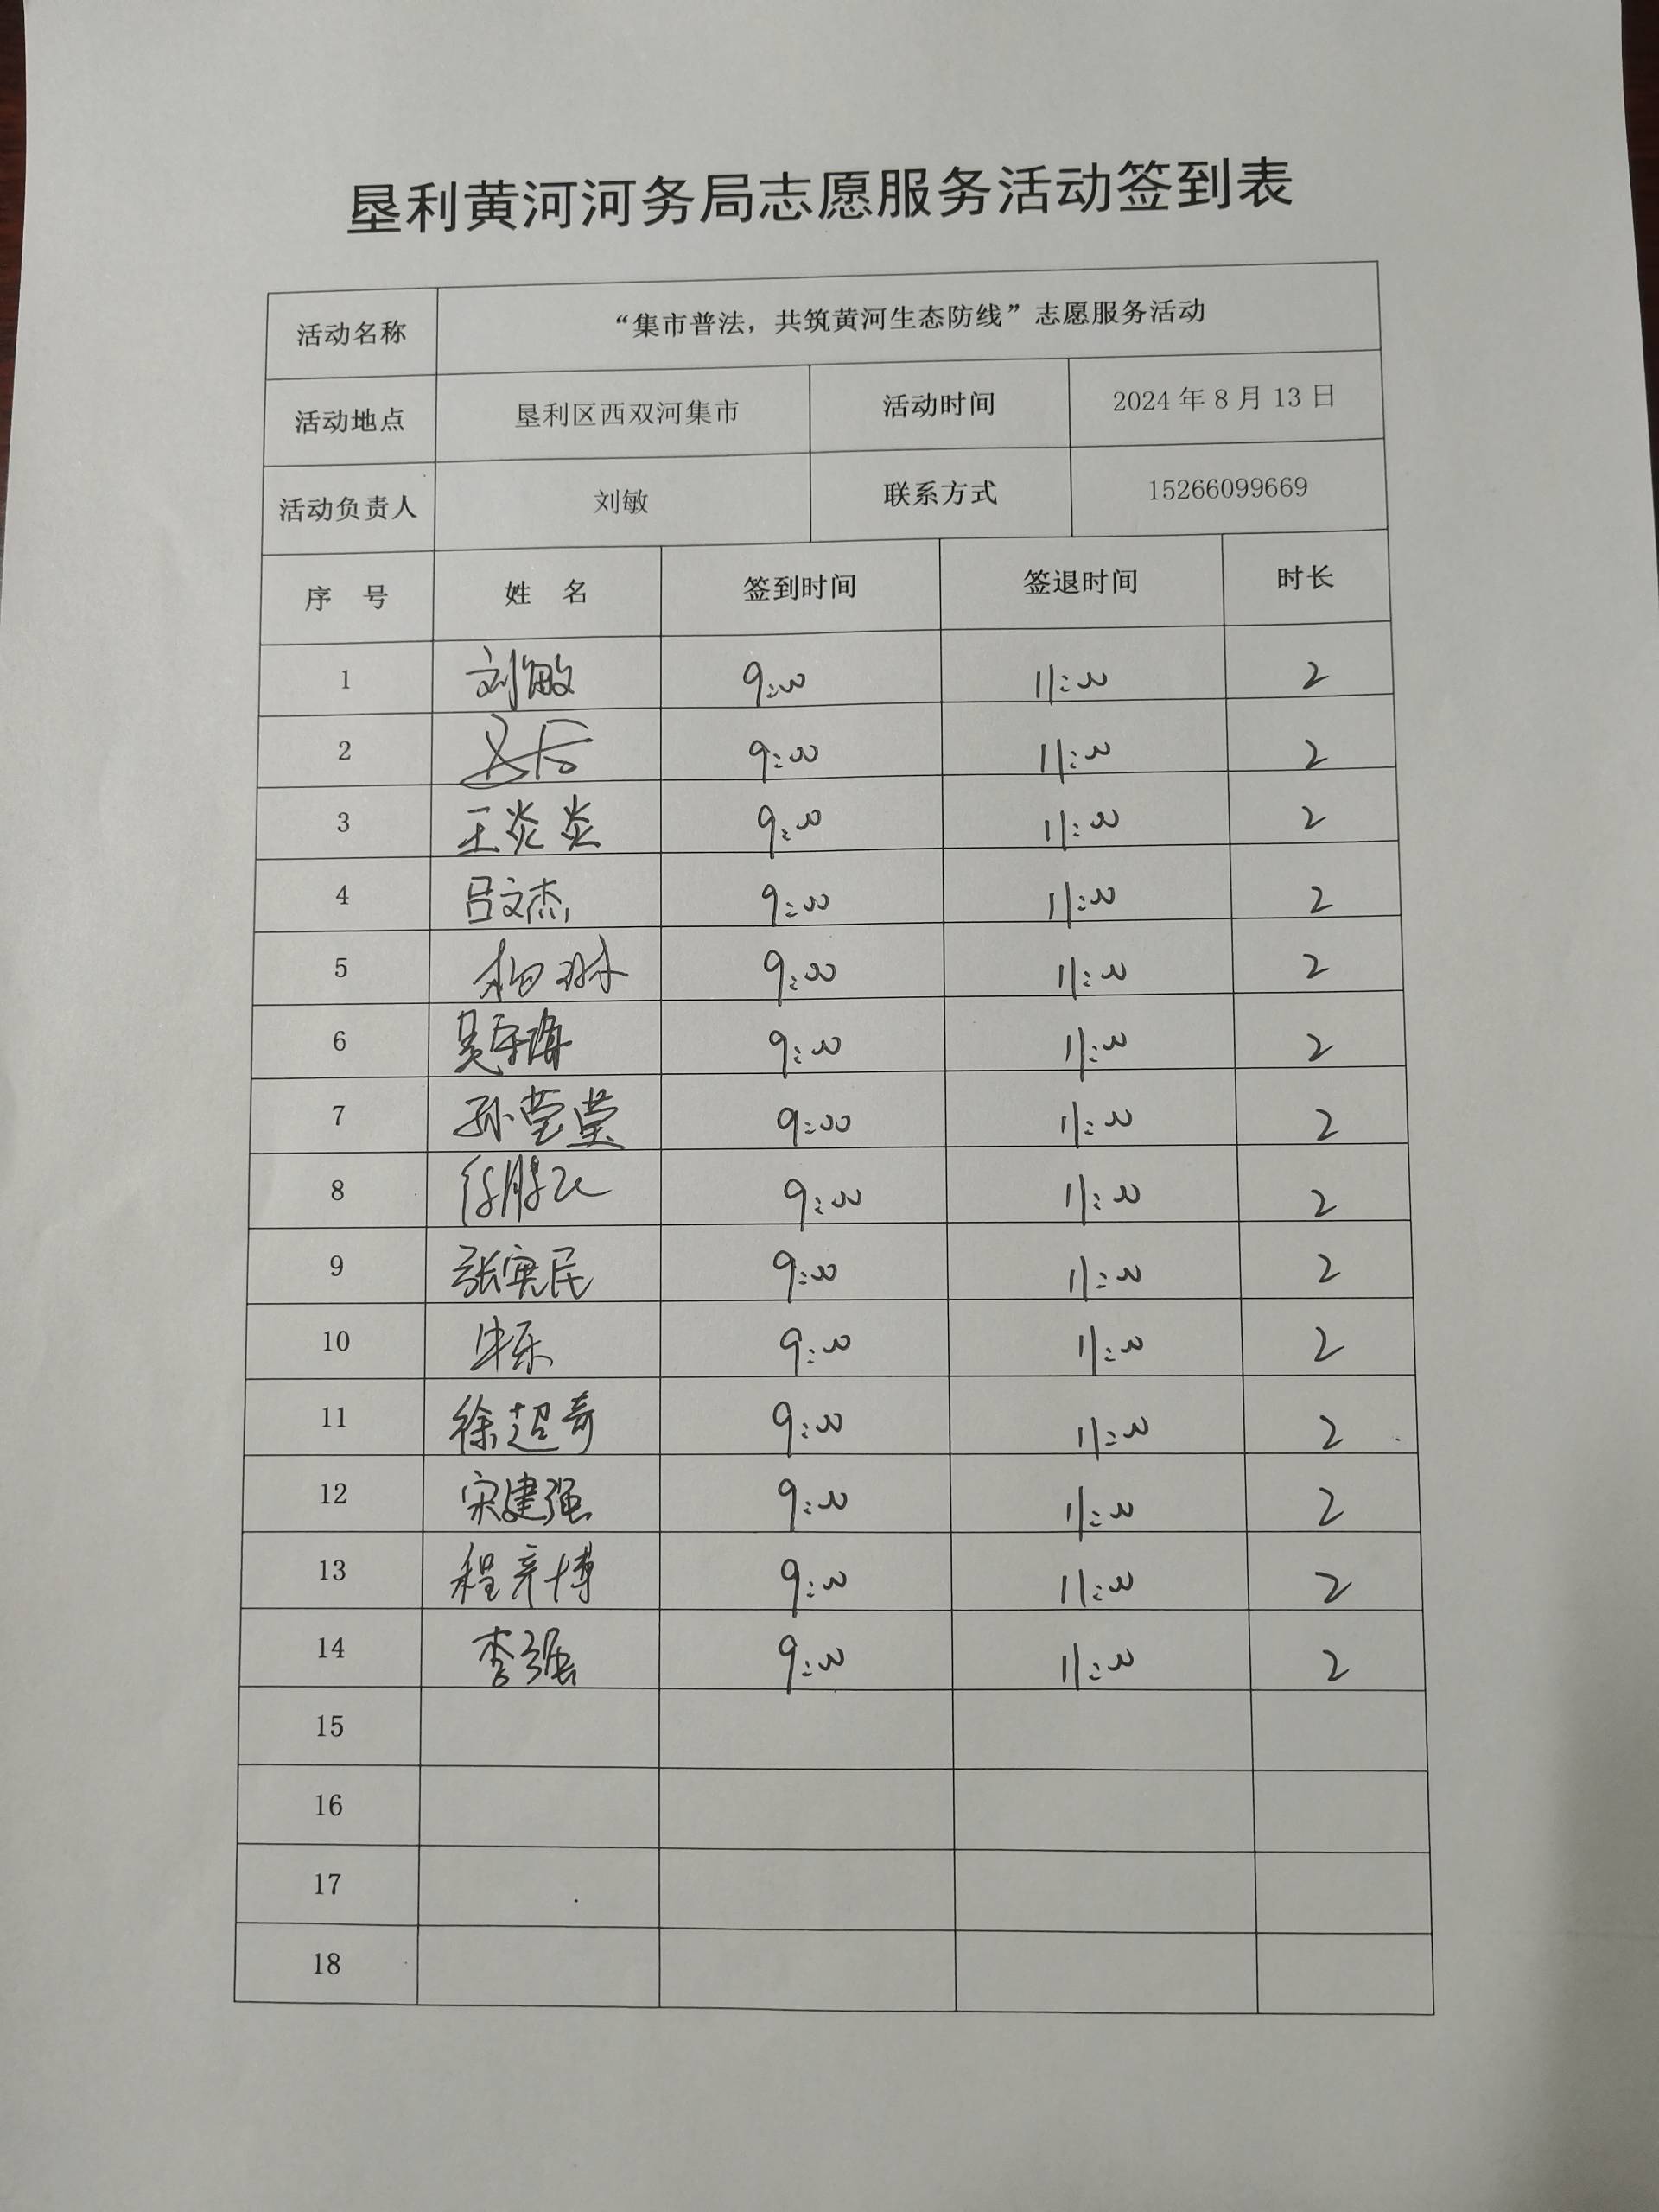 垦利黄河河务局志愿服务活动签到表
活动名称 “集市普法，共筑黄河生态防线”志愿服务活动
活动地点 垦利区西双河集市 活动时间 2024年8月13日
活动负责人 刘敏 联系方式 15266099669
序 号 姓 名 签到时间 签退时间 时长
1 刘敏 9:00 11:00 2
2 9:00 11:00 2
3 王炎炎 9:00 11:00 2
4 吕文杰 9:00 11:00 2
5 杨琳 9:00 11:00 2
6 9:00 11:00 2
7 孙莹莹 9:00 11:00 2
8 9:00 11:00 2
9 张寅民 9:00 11:00 2
10 牛乐 9:00 11:00 2
11 徐超奇 9:00 11:00 2
12 宋建强 9:00 11:00 2
13 程彦博 9:00 11:00 2
14 李强 9:00 11:00 2
15
16
17
18